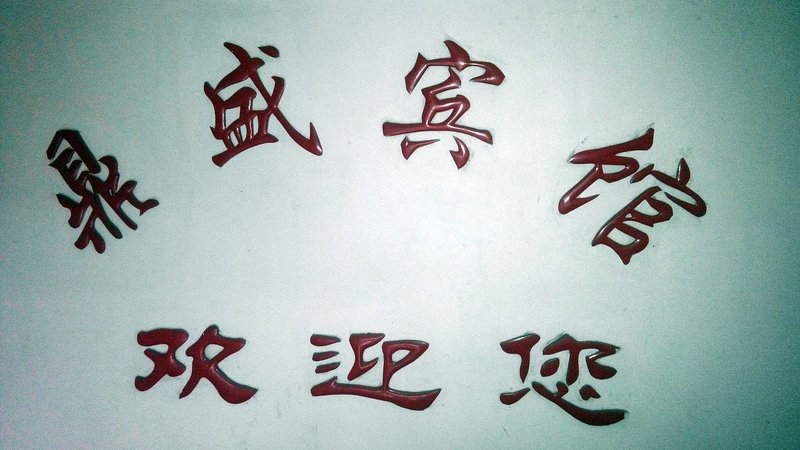 鼎盛宾馆
欢迎您